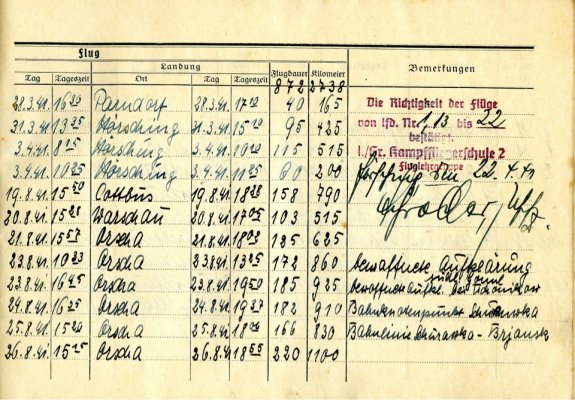 Flug
Landung Flugdauer Kilometer Bemerkungen
Tag Tageszeit Ort Tag Tageszeit 872 2738
28.3.41. 16 20 Parndorf 28.3.41. 17 00 40 165 Die Richtigkeit der Flüge
31.3.41. 13 35 Hörsching 31.3.41. 15 10 95 425 von lfd. Nr. 113 bis 22
3.4.41. 8 15 Hörsching 3.4.41. 10 10 115 515 bestätigt
3.4.41. 10 25 Hörsching 3.4.41. 11 25 60 200 1./Gr. Kampffliegerschule 2
Fluglehrgruppe
Hörsching den 22.4.41
19.8.41. 15 50 Cottbus 19.8.41. 18 28 158 790
20.8.41. 15 22 Warschau 20.8.41. 17 05 103 515
21.8.41. 15 57 Orscha 21.8.41. 18 02 125 625
23.8.41. 10 33 Orscha 23.8.41. 13 25 172 860 bewaffnete Aufklärung
23.8.41. 16 45 Orscha 23.8.41. 19 50 185 925 bewaffnete Aufkl.
24.8.41. 16 25 Orscha 24.8.41. 19 27 182 910 Bahnknotenpunkt
25.8.41. 15 20 Orscha 25.8.41. 18 06 166 830 Bahnlinie - Brjansk
26.8.41. 15 15 Orscha 26.8.41. 18 55 220 1100